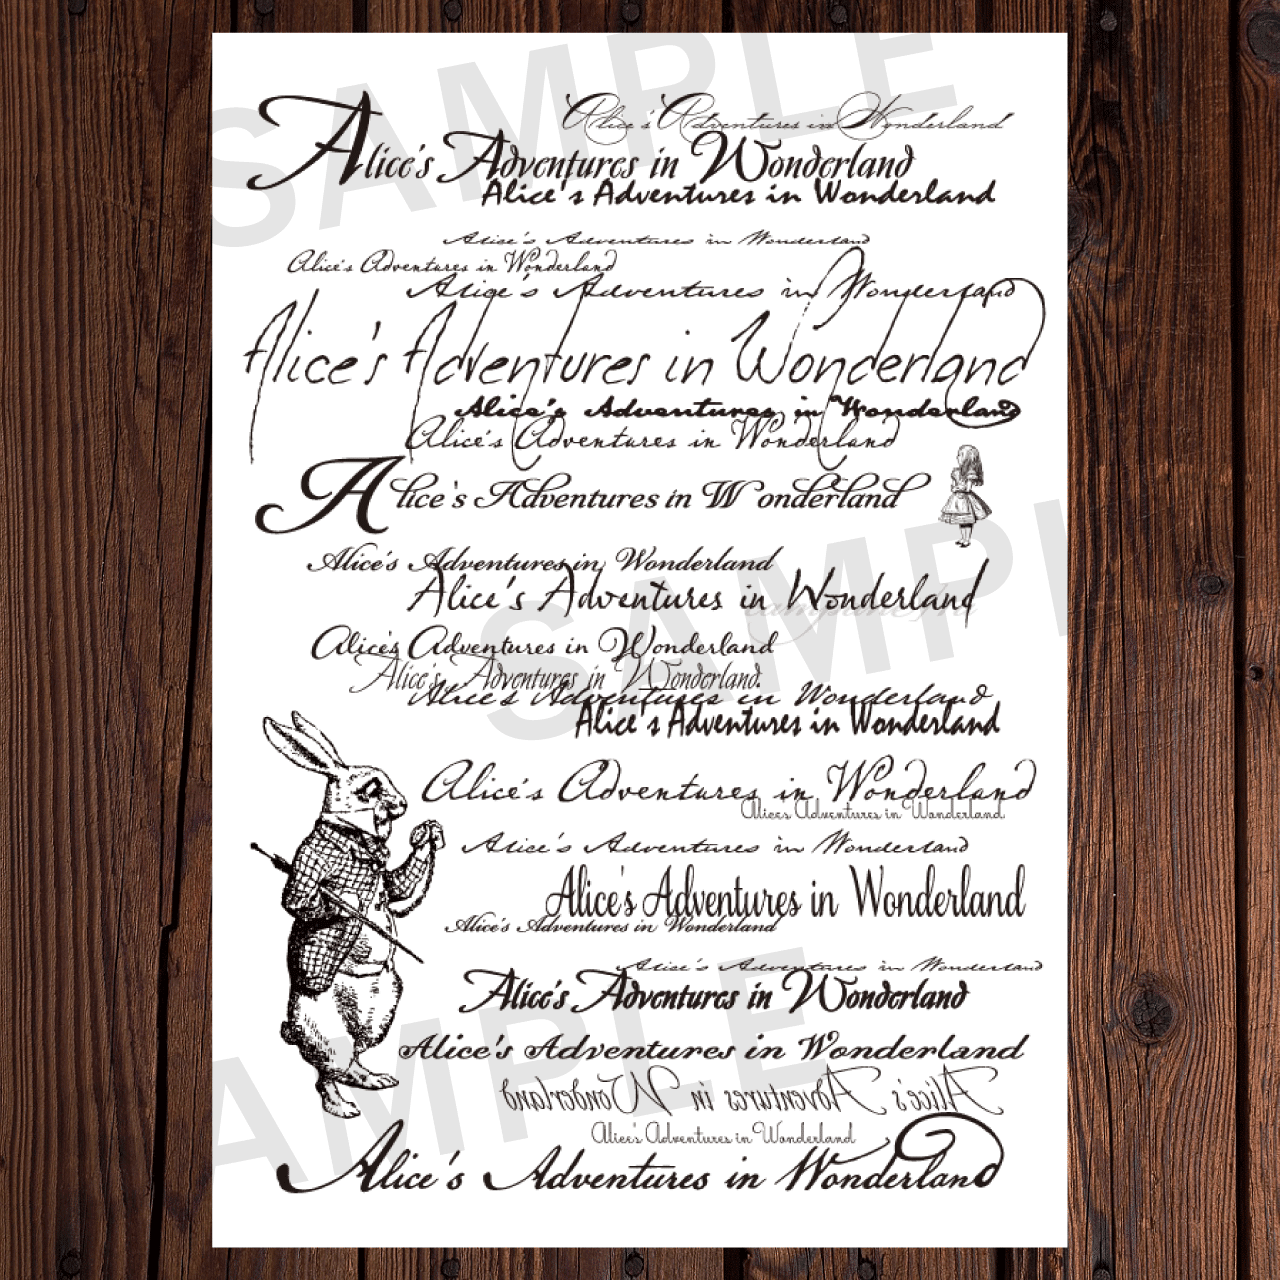 SAMPLE
Alice's Adventures in Wonderland
Alice's Adventures in Wonderland
Alice's Adventures in Wonderland
Alice's Adventures in Wonderland
Alice's Adventures in Wonderland
Alice's Adventures in Wonderland
Alice's Adventures in Wonderland
Alice's Adventures in Wonderland
Alice's Adventures in Wonderland
Alice's Adventures in Wonderland
SAMPL
Alice's Adventures in Wonderland
Alice's Adventures in Wonderland
Alice's Adventures in Wonderland
Alice's Adventures in Wonderland.
Alice's Adventures in Wonderland
Alice's Adventures in Wonderland
Alice's Adventures in Wonderland
Alice's Adventures in Wonderland
Alice's Adventures in Wonderland
Alice's Adventures in Wonderland
Alice's Adventures in Wonderland
Alice's Adventures in Wonderland
Alice's Adventures in Wonderland
AMPLE
Alice's Adventures in Wonderland
Alice's Adventures in Wonderland
Alice's Adventures in Wonderland
Alice's Adventures in Wonderland